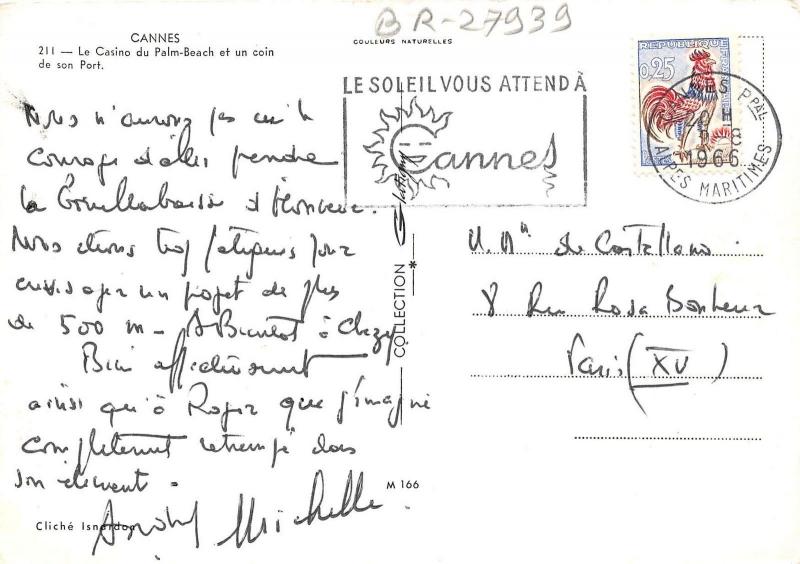 BR-27939
CANNES
211 — Le Casino du Palm-Beach et un coin
de son Port.
COULEURS NATURELLES
LE SOLEIL VOUS ATTEND À
Cannes
REPUBLIQUE FRANÇAISE
0,25
CANNES PPAL
20 H
8
1966
ALPES MARITIMES
Nous n'aurons pas eu le
courage d'aller prendre
la Bouillabaisse d'honneur.
Nous étions trop fatigués pour
envisager un projet de plus
de 500 m - A Bientôt à Chezy
Bien affectueusement
ainsi qu'à Roger que j'imagine
complètement retrempé dans
son élément.
Michelle
COLLECTION *
M. Mme de Castellano
8 Rue Rosa Bonheur
Paris (XV)
M 166
Cliché Isnardon